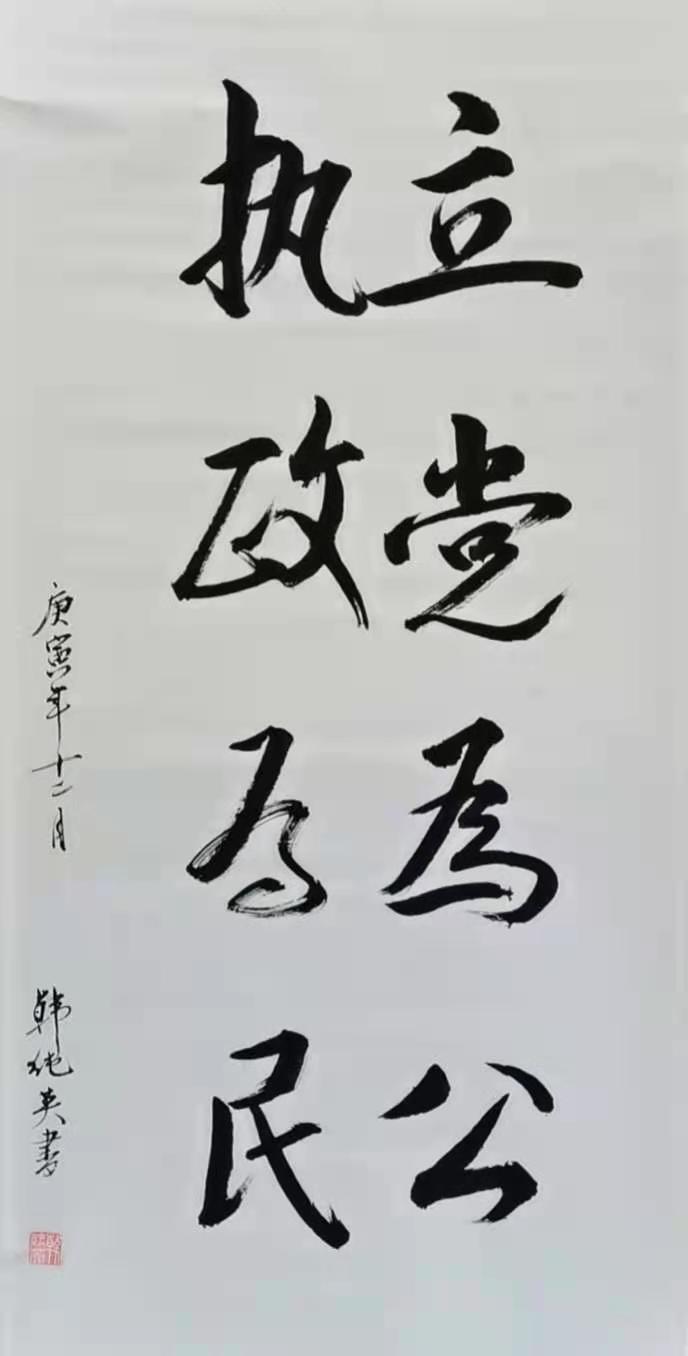 立党為公
执政为民
庚寅年十二月
韩纯英書